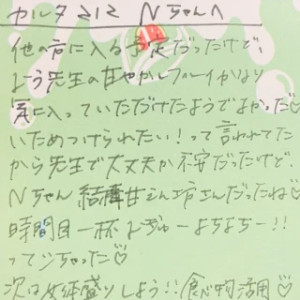 カルタ212 Nちゃんへ
他の店に入る予定だったけど、
よう先生の甘やかしプレイかなり
気に入っていただけたようでよかった♡
いためつけられたい!って言われてた
から先生で大丈夫か不安だったけど、
Nちゃん 結構甘えん坊さんだったね♡
時間目一杯 ぎゅーよちよちー!!
ってシちゃった♡
次は 盛りしよう!! 食べ物活用♡